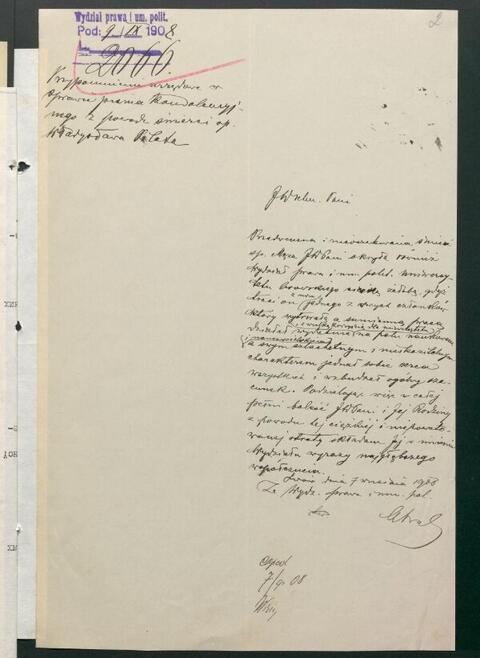 2
Wydział prawa i um. polit.
Pod: 9/IX 1908
2060.
Przypomnienie urzędowe w
sprawie pisma kondolencyj-
nego z powodu śmierci śp.
Władysława Pilata
JWielm. Pani
Przedwczesna i nieoczekiwana śmierć
śp. Męża JWPani okryła również
Wydział prawa i um. polit. Uniwersy-
tetu lwowskiego żałobą, gdyż
traci on jednego z swych członków
który wytrwałą a sumienną pracą
działał na polu naukowem
a swym szlachetnym i nieskazitelnym
charakterem jednał sobie serca
wszystkich i wzbudzał ogólny sza-
cunek. Podzielając więc w całej
pełni boleść JWPani i Jej Rodziny
z powodu tej ciężkiej i niepoweto-
wanej straty składam Jej w imieniu
Wydziału wyrazy najgłębszego
współczucia.
Lwów dnia 7 września 1908
Za Wydz. prawa i um. pol.
7/9 08